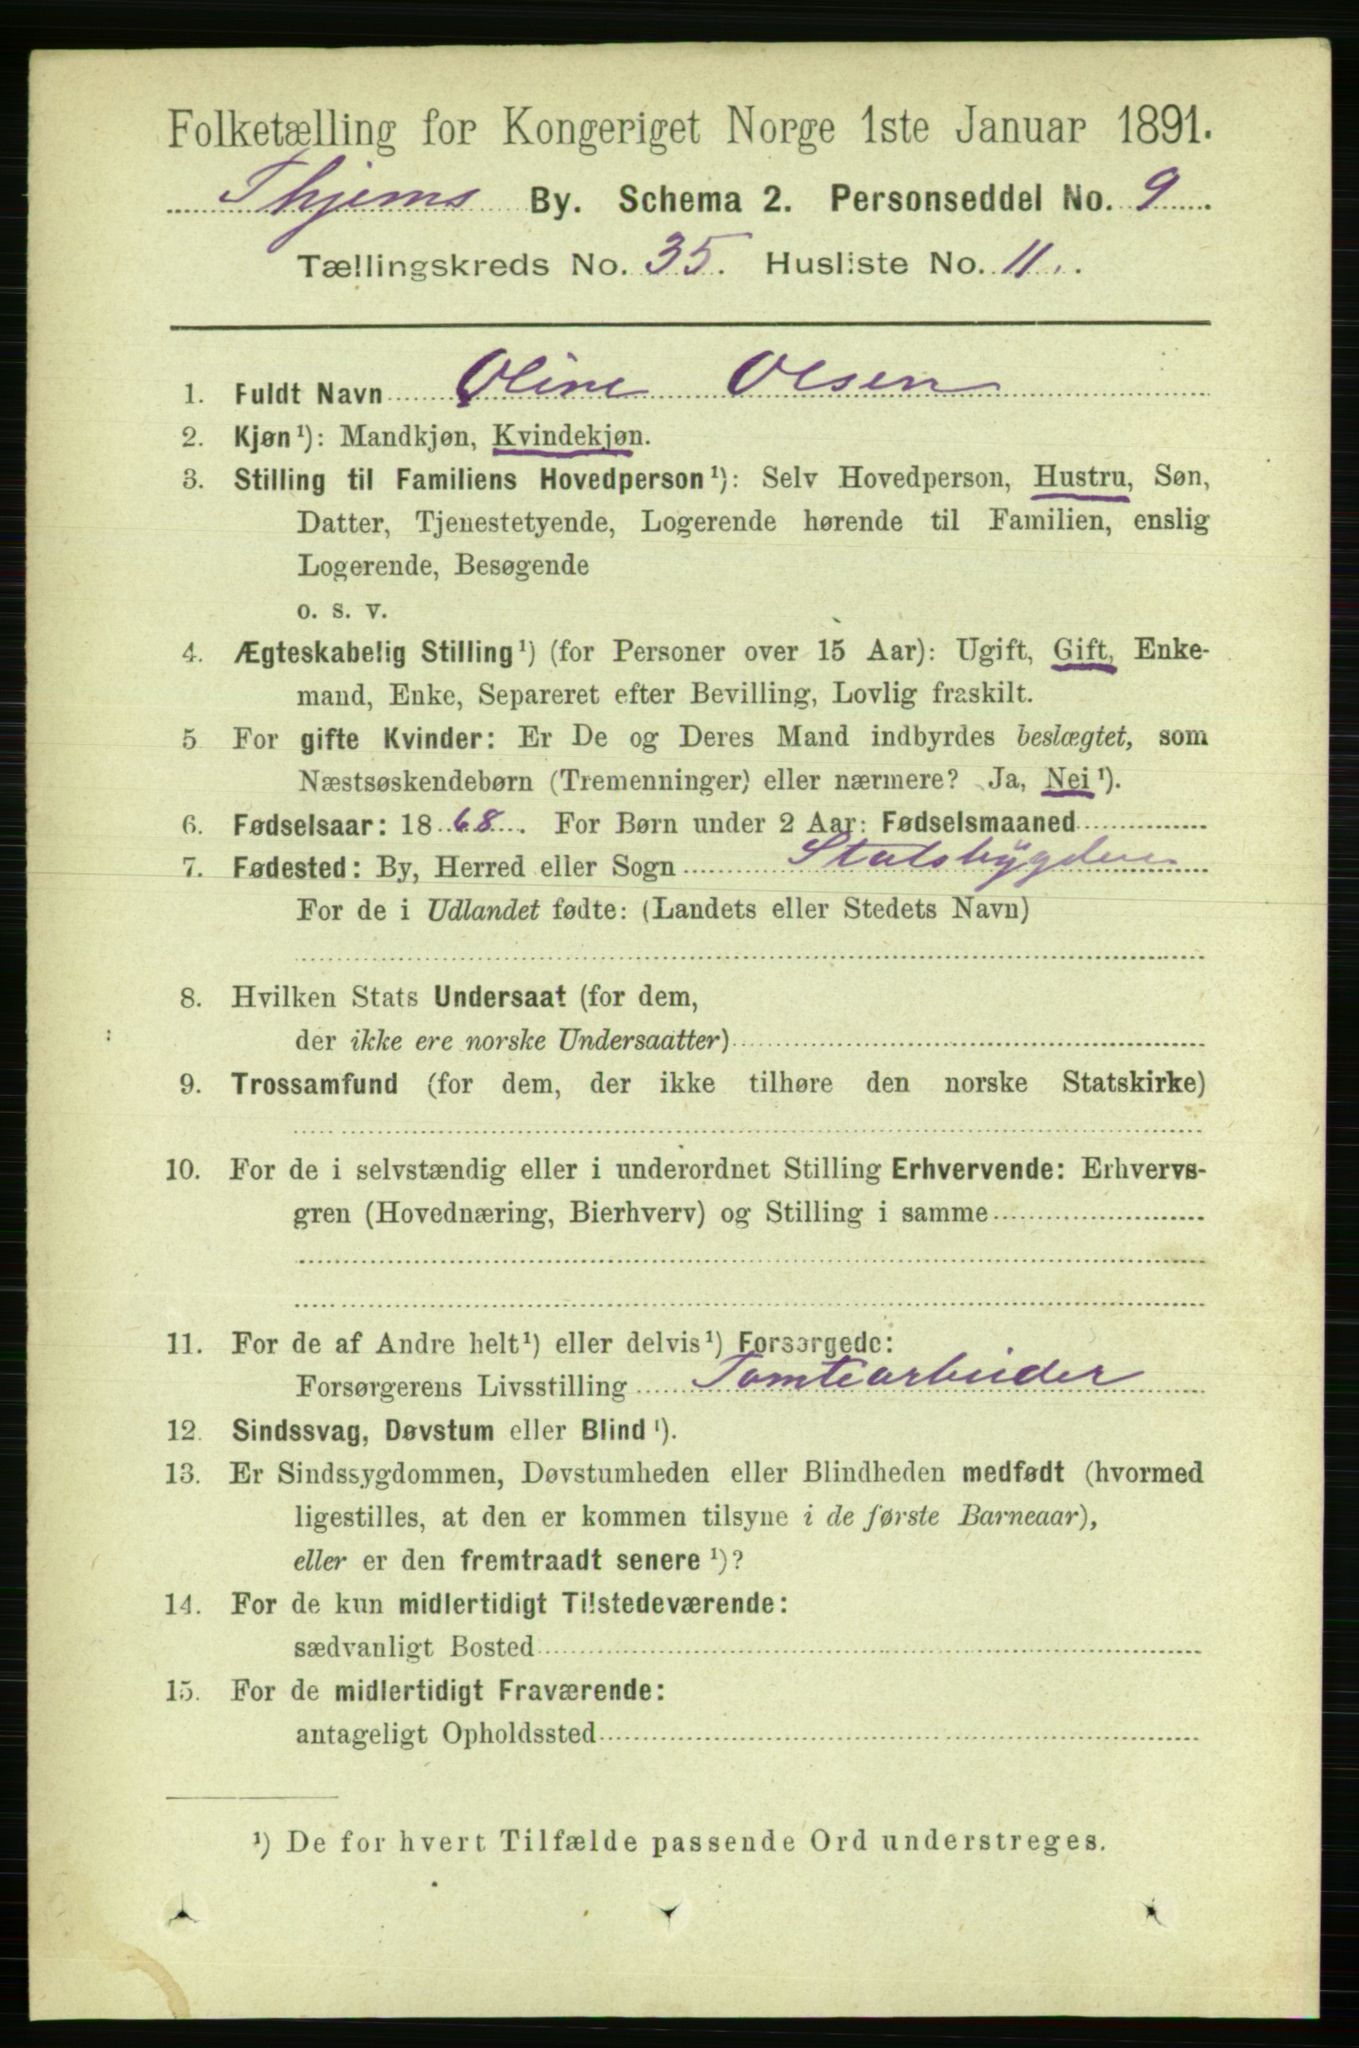 Folketælling for Kongeriget Norge 1ste Januar 1891.
Thjems By. Schema 2. Personseddel No. 9
Tællingskreds No. 35. Husliste No. 11.
1. Fuldt Navn Oline Olsen
2. Kjøn¹): Mandkjøn, Kvindekjøn.
3. Stilling til Familiens Hovedperson¹): Selv Hovedperson, Hustru, Søn,
Datter, Tjenestetyende, Logerende hørende til Familien, enslig
Logerende, Besøgende
o. s. v.
4. Ægteskabelig Stilling¹) (for Personer over 15 Aar): Ugift, Gift, Enke-
mand, Enke, Separeret efter Bevilling, Lovlig fraskilt.
5 For gifte Kvinder: Er De og Deres Mand indbyrdes beslægtet, som
Næstsøskendebørn (Tremenninger) eller nærmere? Ja, Nei¹).
6. Fødselsaar: 1868. For Børn under 2 Aar: Fødselsmaaned
7. Fødested: By, Herred eller Sogn Statsbygden
For de i Udlandet fødte: (Landets eller Stedets Navn)
8. Hvilken Stats Undersaat (for dem,
der ikke ere norske Undersaatter)
9. Trossamfund (for dem, der ikke tilhøre den norske Statskirke)
10. For de i selvstændig eller i underordnet Stilling Erhvervende: Erhvervs-
gren (Hovednæring, Bierhverv) og Stilling i samme
11. For de af Andre helt¹) eller delvis¹) Forsørgede:
Forsørgerens Livsstilling Tomtearbeider
12. Sindssvag, Døvstum eller Blind¹).
13. Er Sindssygdommen, Døvstumheden eller Blindheden medfødt (hvormed
ligestilles, at den er kommen tilsyne i de første Barneaar),
eller er den fremtraadt senere¹)?
14. For de kun midlertidigt Tilstedeværende:
sædvanligt Bosted
15. For de midlertidigt Fraværende:
antageligt Opholdssted
¹) De for hvert Tilfælde passende Ord understreges.